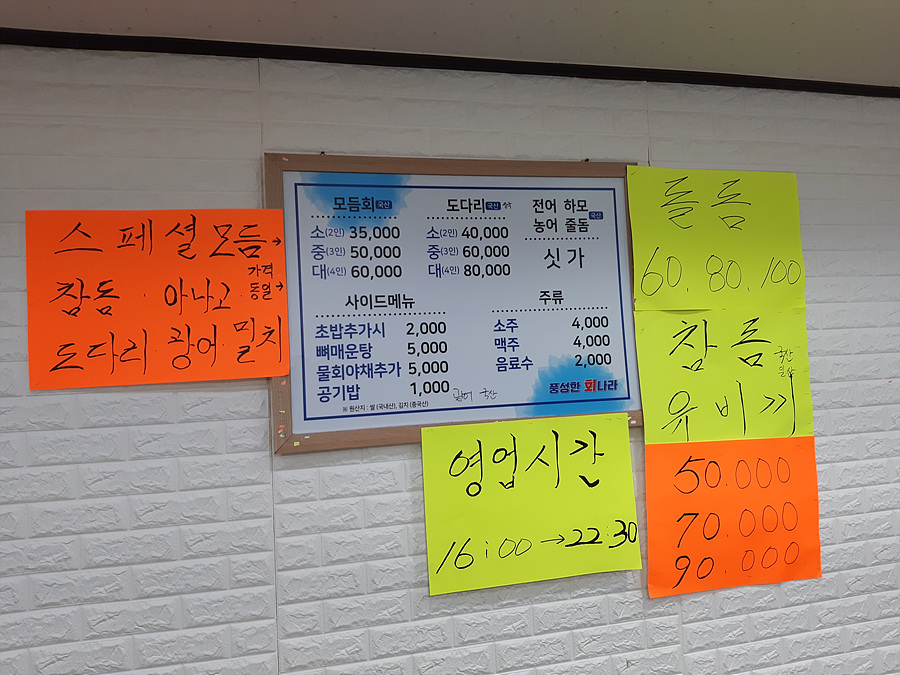 스페셜모듬→
참돔 · 아나고 가격 동일→
도다리 · 광어 밀치
모듬회 국산
소(2인) 35,000
중(3인) 50,000
대(4인) 60,000
도다리 국산
소(2인) 40,000
중(3인) 60,000
대(4인) 80,000
전어 하모
농어 줄돔 국산
싯가
사이드메뉴
초밥추가시 2,000
뼈매운탕 5,000
물회야채추가 5,000
공기밥 1,000
※ 원산지 : 쌀 (국내산), 김치 (중국산)
광어 국산
주류
소주 4,000
맥주 4,000
음료수 2,000
풍성한 회나라
돌돔
60. 80. 100
참돔 국산 일산
유비끼
50.000
70.000
90.000
영업시간
16:00→22:30